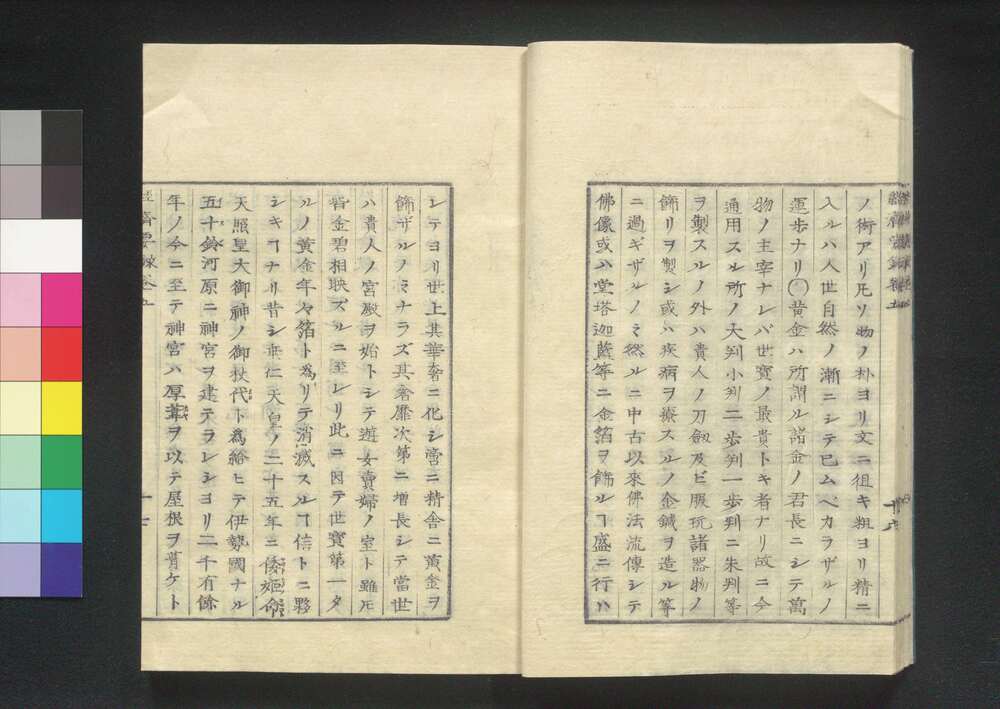 ノ術アリ凡ソ物ノ朴ヨリ文ニ徂キ粗ヨリ精ニ
入ルハ人世自然ノ漸ニシテ已ムベカラザルノ
運歩ナリ○黄金ハ所謂ル諸金ノ君長ニシテ萬
物ノ主宰ナレバ世寳ノ最貴トキ者ナリ故ニ今
通用スル所ノ大判小判二歩判一歩判二朱判等
ヲ製スルノ外ハ貴人ノ刀劔及ビ服玩諸器物ノ
餝リヲ製シ或ハ疾病ヲ療スルノ金鍼ヲ造ル等
ニ過ギザルノミ然ルニ中古以來佛法流傳シテ
佛像或ハ堂塔迦藍等ニ金箔ヲ餝ルヿ盛ニ行ハ
シテヨリ世上其華奢ニ化シ嘗ニ精舎ニ黄金ヲ
餝ザルノミナラズ其奢靡次第ニ増長シテ當世
ハ貴人ノ宮殿ヲ始トシテ遊女賣婦ノ室ト雖𪜈
皆金碧相映ズルニ至レリ此ニ因テ世寳第一タ
ルノ黄金年々箔ト為リテ消滅スルヿ信トニ夥
シキヿナリ昔シ垂仁天皇ノ二十五年ニ倭姫命
天照皇大御神ノ御杖代ト為給ヒテ伊勢國ナル
五十鈴河原ニ神宮ヲ建テラレシヨリ二千有餘
年ノ今ニ至テ神宮ハ厚葺ヲ以テ屋根ヲ葺ケト
經濟要録卷五